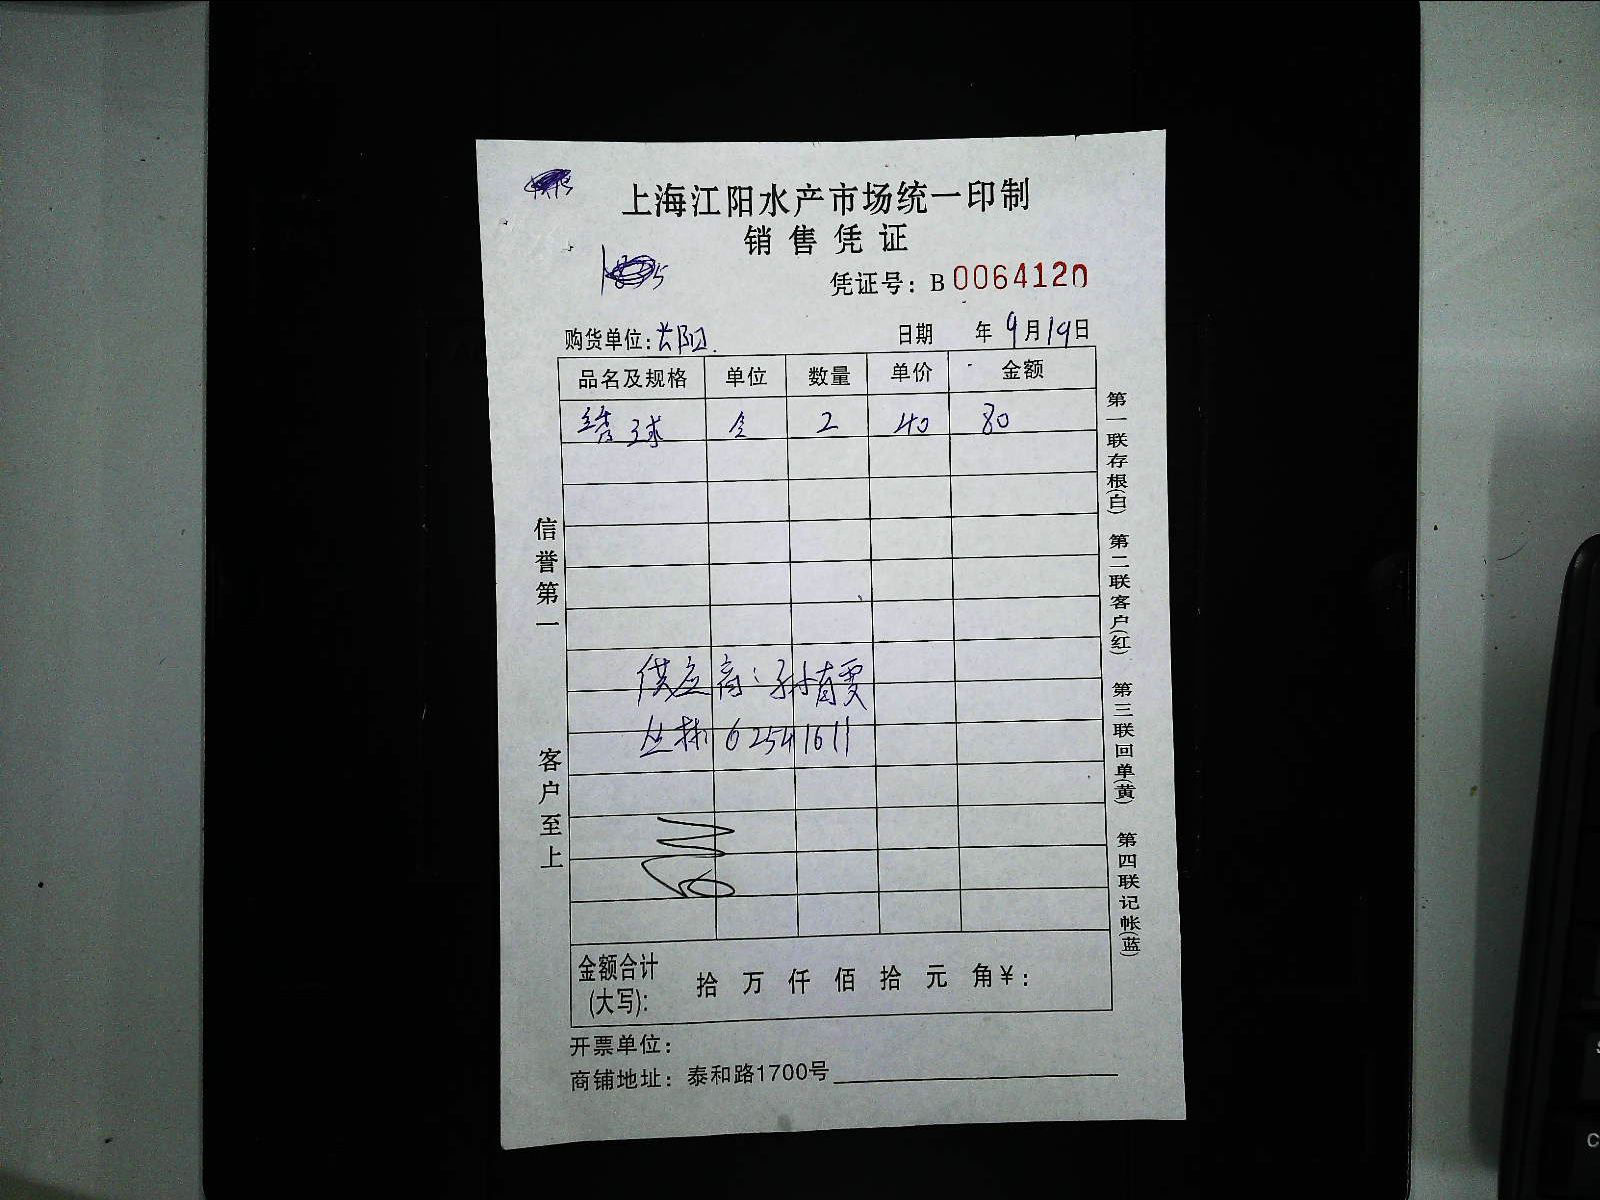 上海江阳水产市场统一印制
销售凭证
凭证号：B 0064120
购货单位：长阳.
日期 年 9月19日
品名及规格 单位 数量 单价 金额
绣球 2 40 80
信誉第一
客户至上
供应商：孙
丛林 62541611
第一联存根(白) 第二联客户(红) 第三联回单(黄) 第四联记帐(蓝)
金额合计(大写): 拾 万 仟 佰 拾 元 角¥：
开票单位：
商铺地址：泰和路1700号